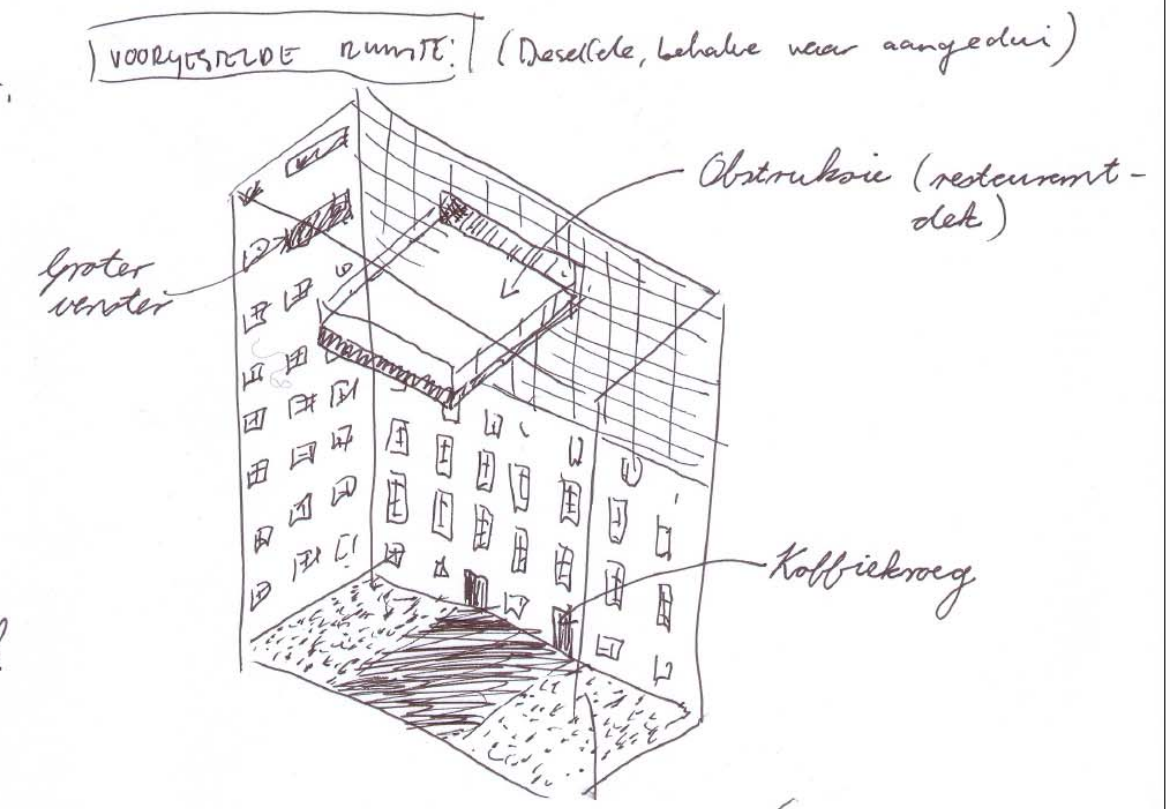 VOORGESTELDE RUIMTE:
(Deselfde, behalwe waar aangedui)
Obstruksie (restaurant-
dek)
Groter
venster
Koffiekroeg